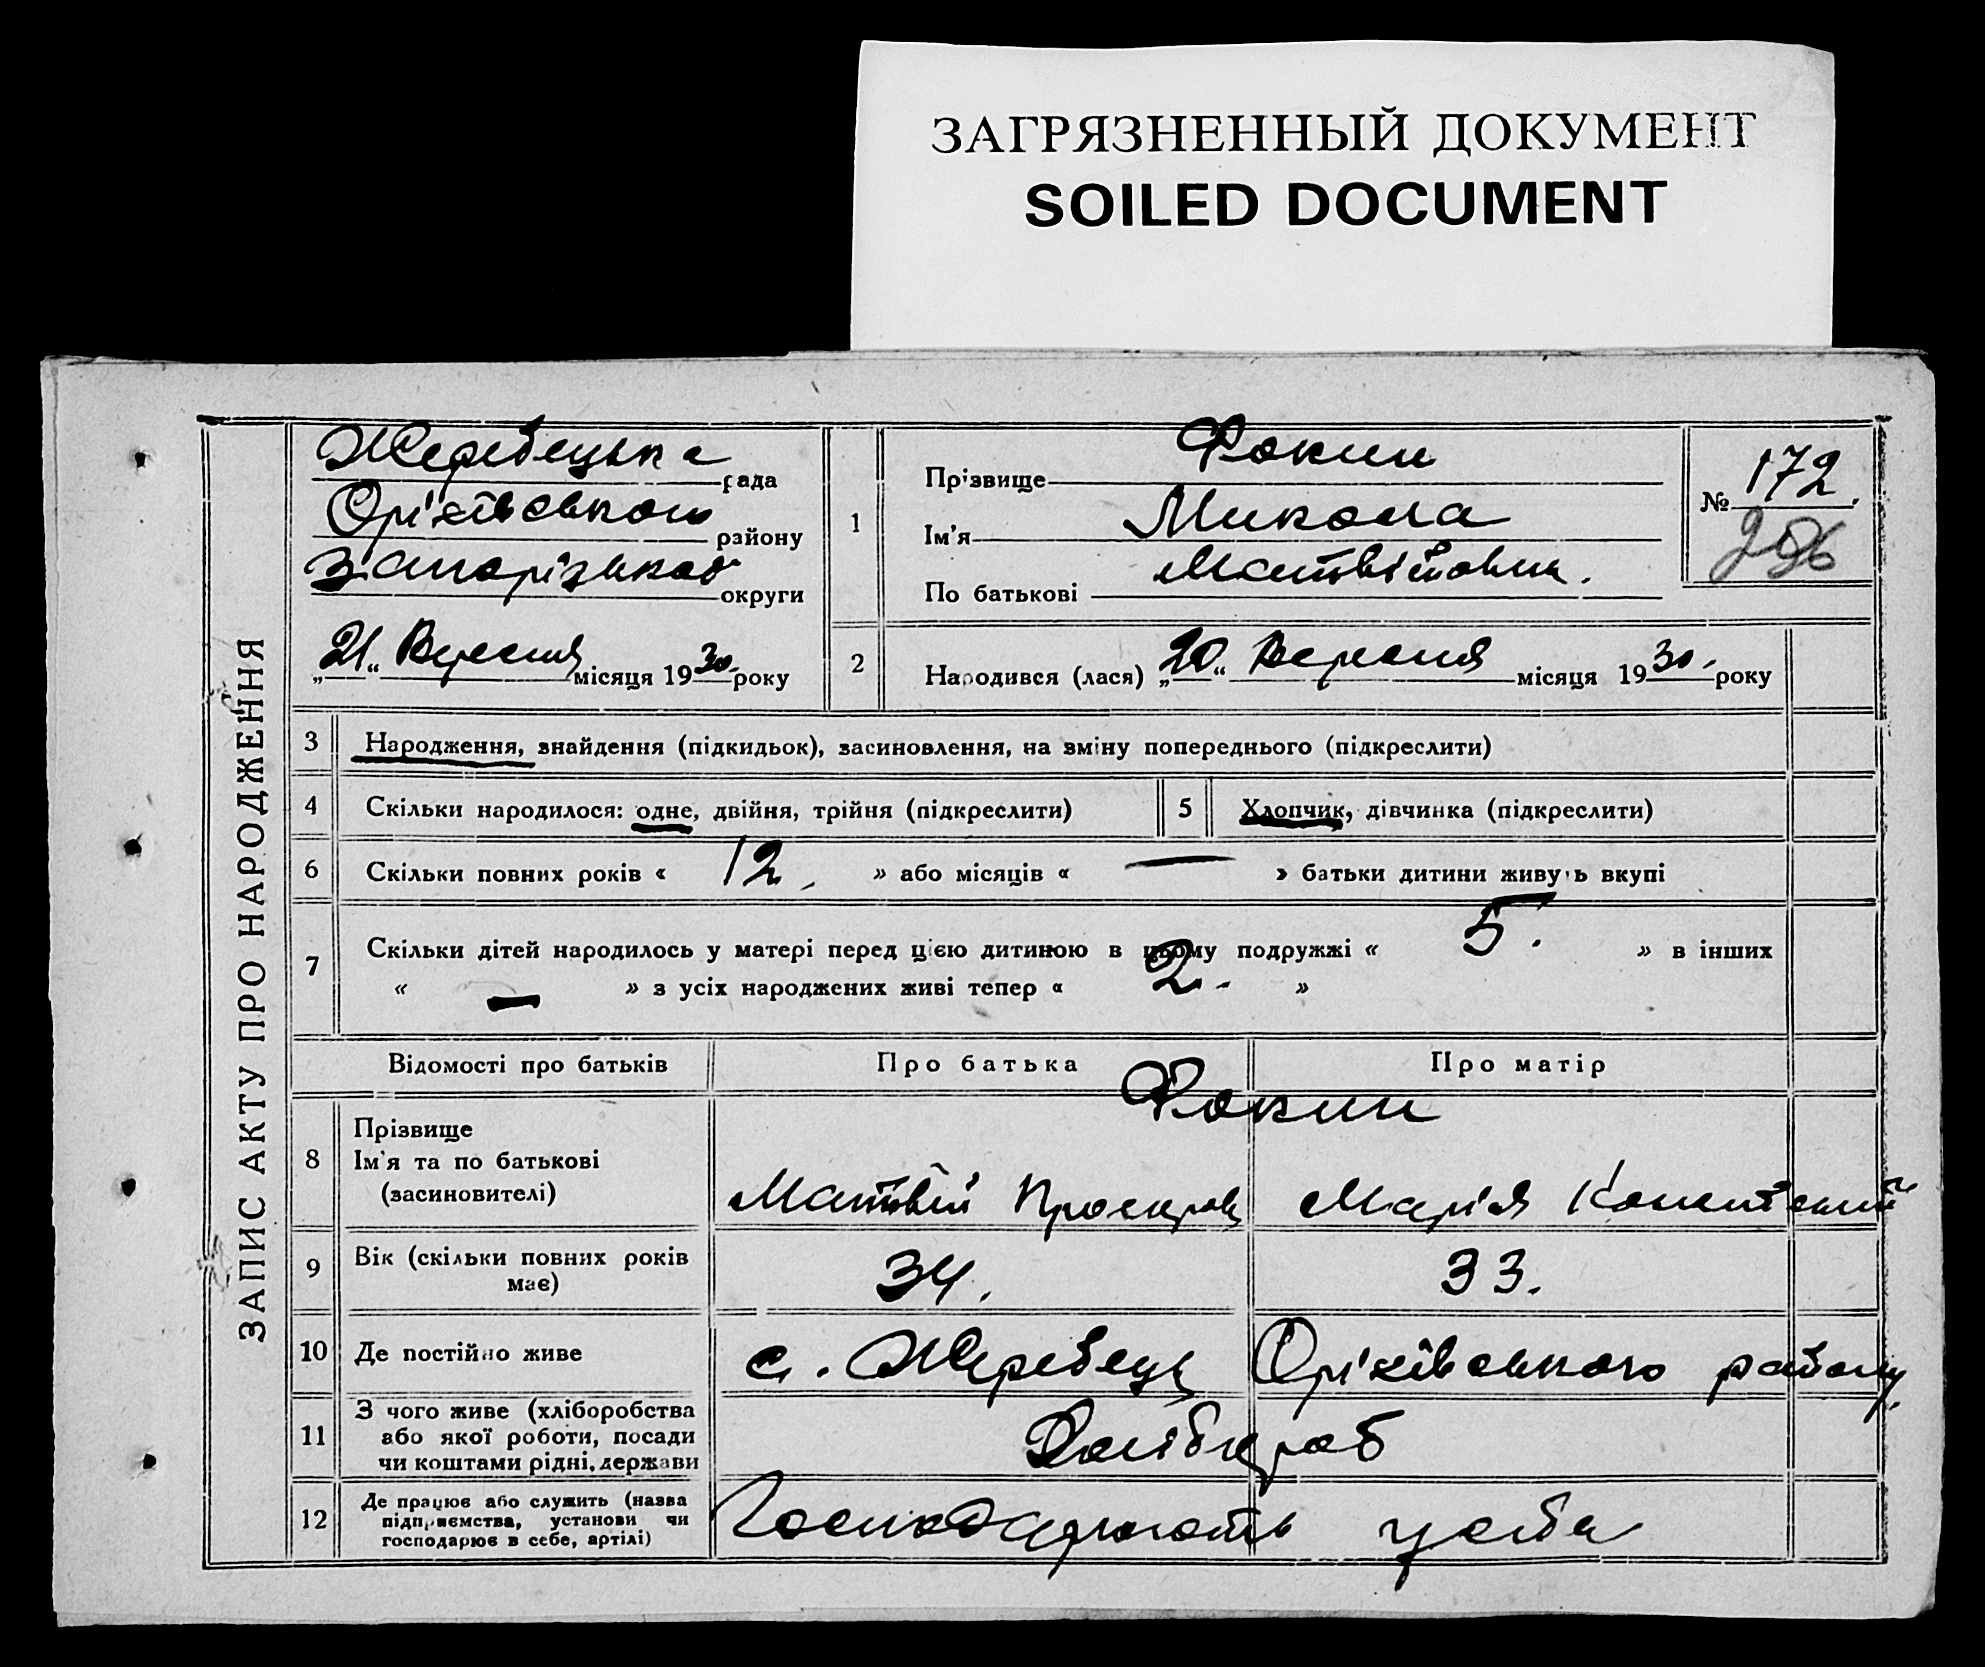 ЗАГРЯЗНЕННЫЙ ДОКУМЕНТ
SOILED DOCUMENT
ЗАПИС АКТУ ПРО НАРОДЖЕННЯ
Жеребецька рада
Оріхівського району
Запорізької округи
„21“ Вересня місяця 1930 року
1
Прізвище Фокин
Ім'я Микола
По батькові Матвійович.
№ 172.
2
Народився (лася) „20“ Вересня місяця 1930. року
3 Народження, знайдення (підкидьок), засиновлення, на зміну попереднього (підкреслити)
4 Скільки народилося: одне, двійня, трійня (підкреслити)
5 Хлопчик, дівчинка (підкреслити)
6 Скільки повних років « 12. » або місяців « — » батьки дитини живуть вкупі
7 Скільки дітей народилось у матері перед цією дитиною в цьому подружжі « 5. » в інших
« — » з усіх народжених живі тепер « 2. »
Відомості про батьків Про батька Про матір
Фокин
8 Прізвище
Ім'я та по батькові
(засиновителі)
Матвій Марія
9 Вік (скільки повних років
має)
34. 33.
10 Де постійно живе с. Жеребець Оріхівського району.
11 З чого живе (хліборобства
або якої роботи, посади
чи коштами рідні, держави
Хлібороб
12 Де працює або служить (назва
підприємства, установи чи
господарює в себе, артілі)
Господарюють у себе